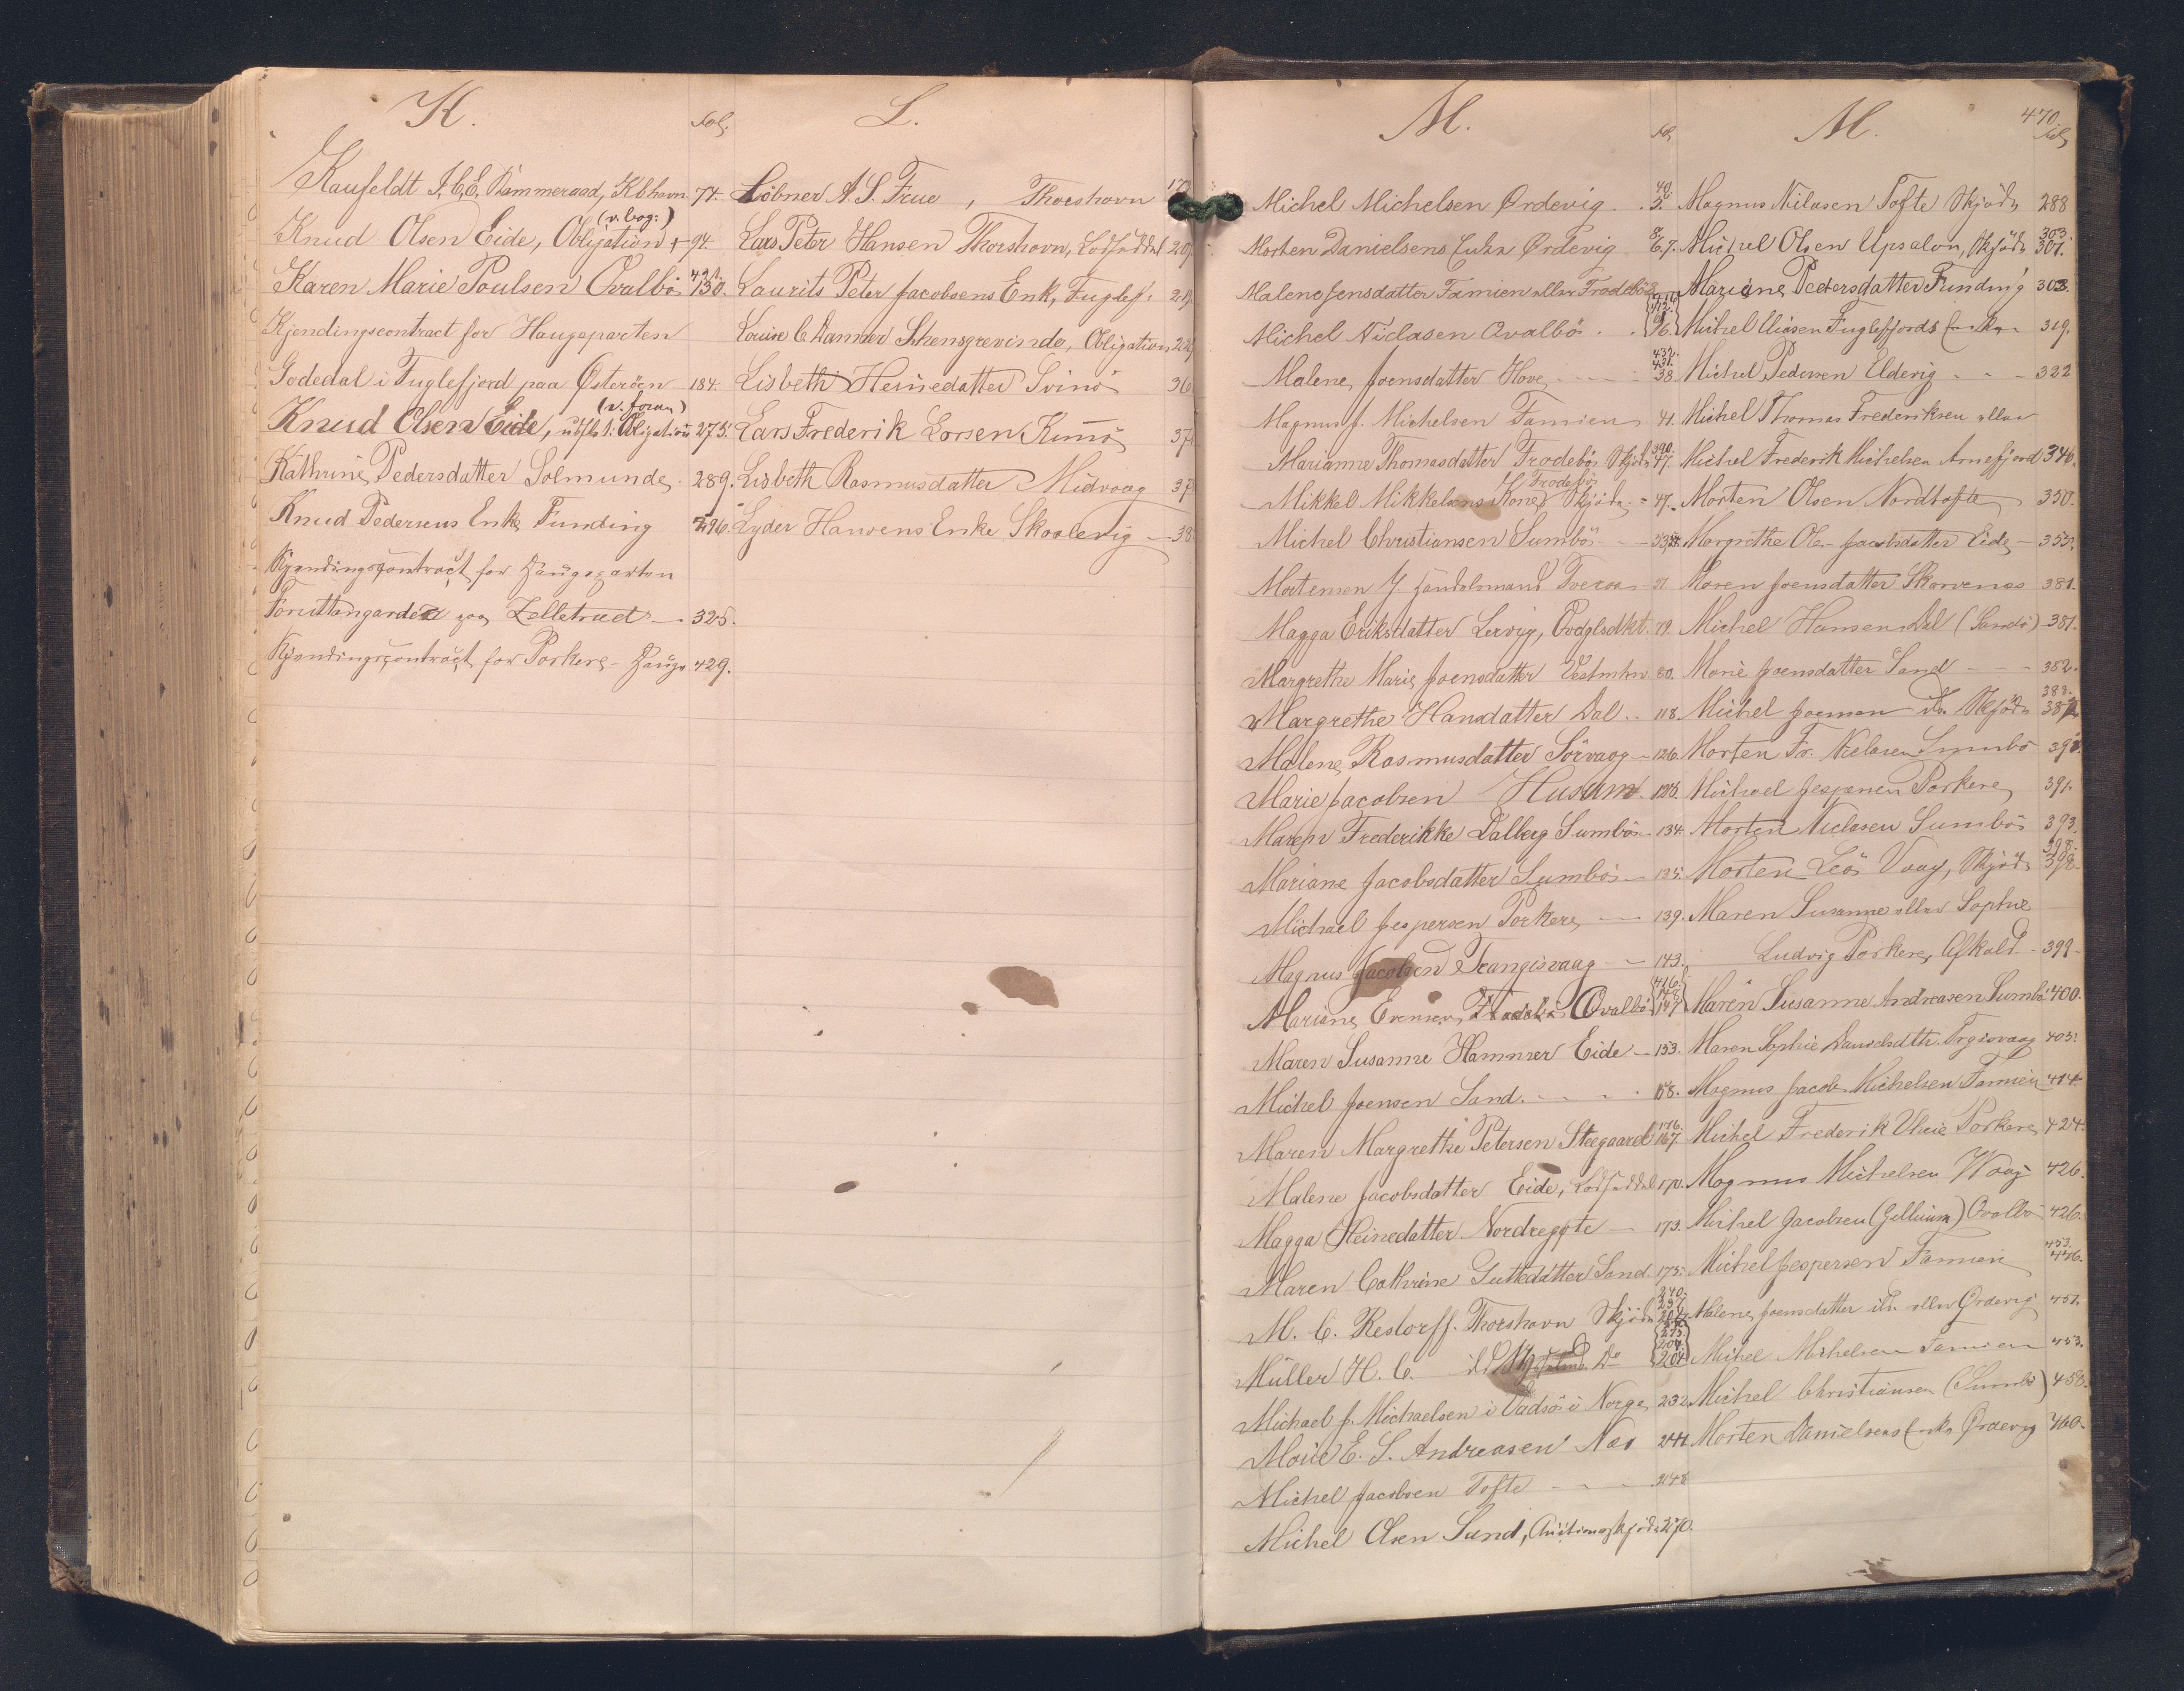 K. Fol.
Kaufeldt J. C. E. Kammeraad, Kbhavn. 74.
Knud Olsen Eide, Obligation (v. bog:) 94.
Karen Marie Poulsen Qvalbö 421. 130.
Kjendingscontract for Haugeparten
Godedal i Fuglefjord paa Østeröen 184.
Knud Olsen Eide, udslt. Obligation (v. foran) 275.
Kathrine Pedersdatter Solmunde 289.
Knud Pedersens Enke Funding 296.
Kjendingscontract for Haugeparten
Foruttangarden paa Zelletræet 325.
Kjendingscontract for Porkere-Hauge 429.
L.
Löbner A. S. Frue, Thorshavn 172
Lars Peter Hansen Thorshavn, Lodseddel 209
Laurits Peter Jacobsens Enk, Fuglef: 219
Louise C. Danner Lehensgrevinde, Obligation 229
Lisbeth Heinedatter Svinö 36
Lars Frederik Lorsen Kunö 37
Lisbeth Rasmusdatter Midvaag 37
Lyder Hansens Enke Skaalevig 38
M. Fol.
Michel Michelsen Ørdevig 40. 2.
Morten Danielsens Enke Ørdevig 8. 67.
Malene Jensdatter Famien eller Frodebö
Michel Niclasen Qvalbö 16.
Malene Joensdatter Hove 432. 431. 38
Magnus J. Michelsen Famien 41.
Marianne Thomasdatter Frodebö Skjöde 390. 47.
Mikkel Mikkelsens Kone Frodebö Skjöde 47.
Michel Christiansen Sumbö
Mortensen J Handelsmand Tveraa
Magga Eriksdatter Lervig, Qvdglsdkt. 79.
Margrethe Marie Joensdatter Vestmhn 80.
Margrethe Hansdatter Dal 118.
Malene Rasmusdatter Sörvaag 126.
Marie Jacobsen Husum 128.
Maren Frederikke Dalberg Sumbö 134.
Mariane Jacobsdatter Sumbö 135.
Michael Jespersen Porkere 139.
Magnus Jacobsen Trangisvaag 143.
Mariane Evensen, Frodebö Qvalbö 416. 148. 147
Maren Susanne Hammer Eide 153.
Michel Joensen Sand 158.
Maren Margrethe Petersen Steegaard 176. 167.
Malene Jacobsdatter Eide, Lodseddel 170.
Magga Heinedatter Nordregöte 173.
Maren Cathrine Guttedatter Sand 175.
M. C. Restorff. Thorshavn Skjöde 240. 237.
Müller H. C. 275. 204. 204.
Michael J. Michaelsen i Vadsö i Norge 232.
Marie E. S. Andreasen Næs 244.
Michel Jacobsen Tofte 248
Michel Olsen Sand, Auctionsskjöde 270.
M. 470 Fol.
Magnus Nielasen Tofte Skjöde 288
Michel Olsen Upsalon, Skjöde 303. 301.
Mariane Pedersdatter Funding 303.
Michel Eliasen Fuglefjords Enke 319.
Michel Pedersen Eldevig 332
Michel Thomas Frederiksen eller
Michel Frederik Michelsen Arnefjord 346.
Morten Olsen Nordtofte 350.
Margrethe Ole-Jacobsdatter Eide 355.
Maren Joensdatter Skarvenes 381.
Michel Hansen Dal (Sandö) 381.
Marie Joensdatter Sand 382.
Michel Joensen do. Skjöde 388. 387
Morten Fr. Nielasen Sumbö 390.
Michael Jespersen Porkere 391.
Morten Niclasen Sumbö 393.
Morten Leös Vaag, Skjöde 398. 398.
Maren Susanne eller Sophie
Ludvig Porkere, Afkald 399
Maren Susanne Andreasen Sumbö 400.
Maren Sophie Danielsdtr. Trgisvaag 405.
Magnus Jacob Michelsen Famien 414.
Michel Frederik Vheie Porkere 424.
Magnus Michelsen Waag 426.
Michel Jacobsen (Gillium) Qvalbö 426.
Michel Jespersen Famien 453. 446.
Malene Joensdatter do. eller Ørdevig 451.
Michel Michelsen Famien 453.
Michel Christiansen (Sumbö) 458.
Morten Danielsens Enke Ørdevig 460.